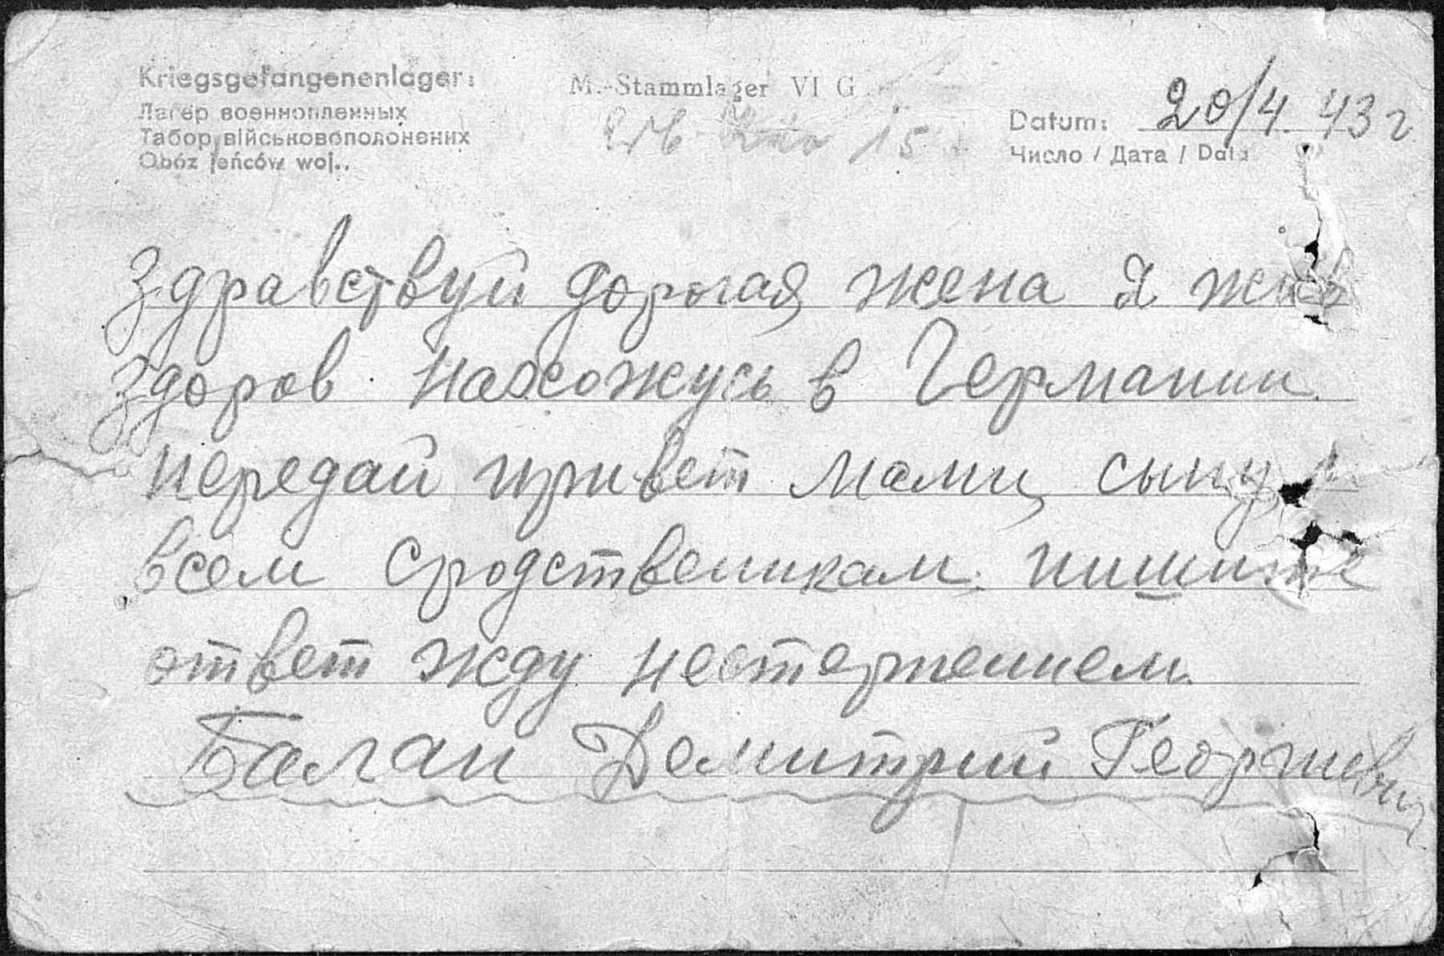 Kriegsgefangenenlager:
M.-Stammlager VI G
Лагер военнопленных
Табор військовополонених
Obóz jeńców woj.
15
Datum: 20/4 43 г
Число / Дата / Data
Здравствуй дорогая жена я жив
здоров нахожусь в Германии
передай привет мами, сыну и
всем сродственикам. пишите
ответ жду нестержением.
Балан Демитрий Георгиевич